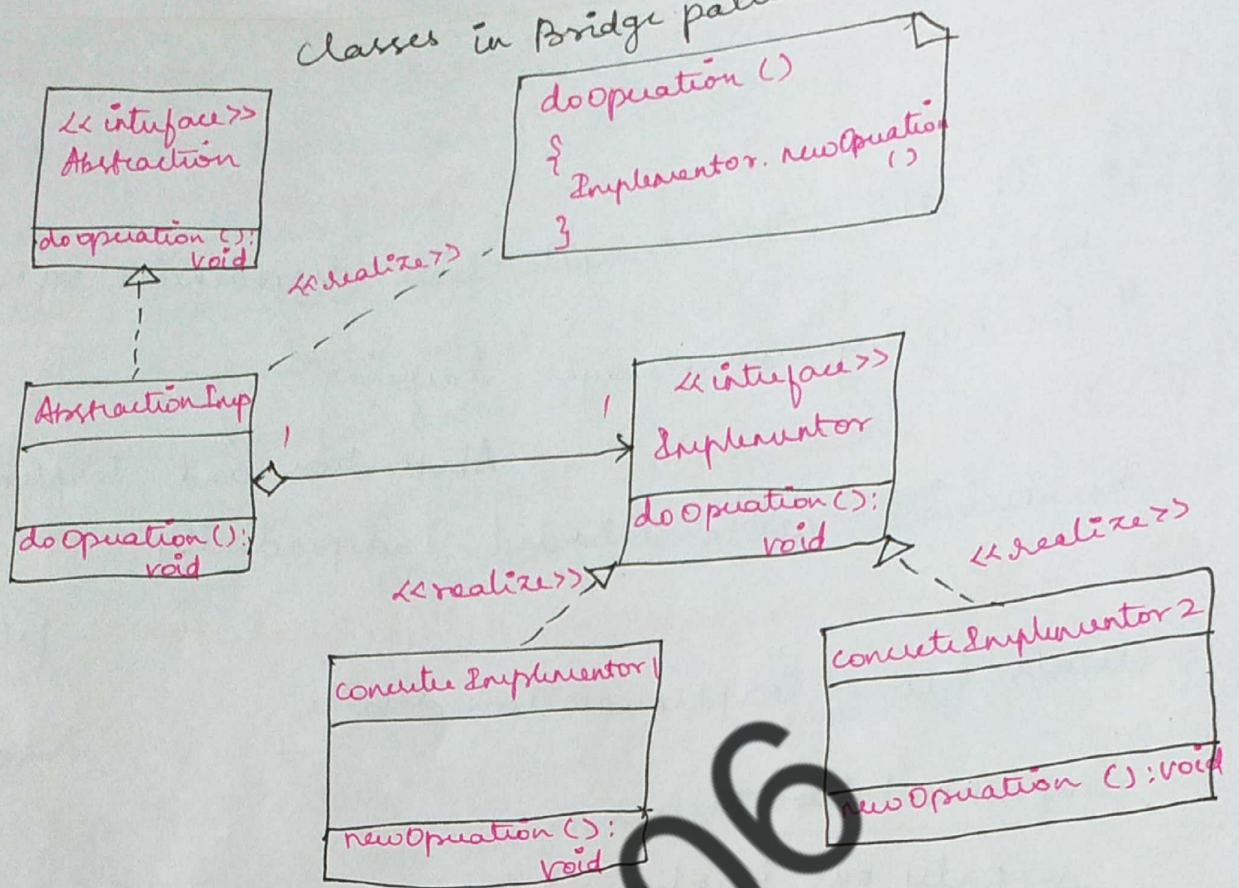 Classes in Bridge pat
<<interface>>
Abstraction
dooperation ():
void
doOperation ()
{
Implementor. newOperation
()
}
<<realize>>
AbstractionImp
doOperation ():
void
1
1
<<interface>>
Implementor
doOperation ():
void
<<realize>>
<<realize>>
concrete Implementor 1
newOperation ():
void
concrete Implementor 2
newOperation () : void
06